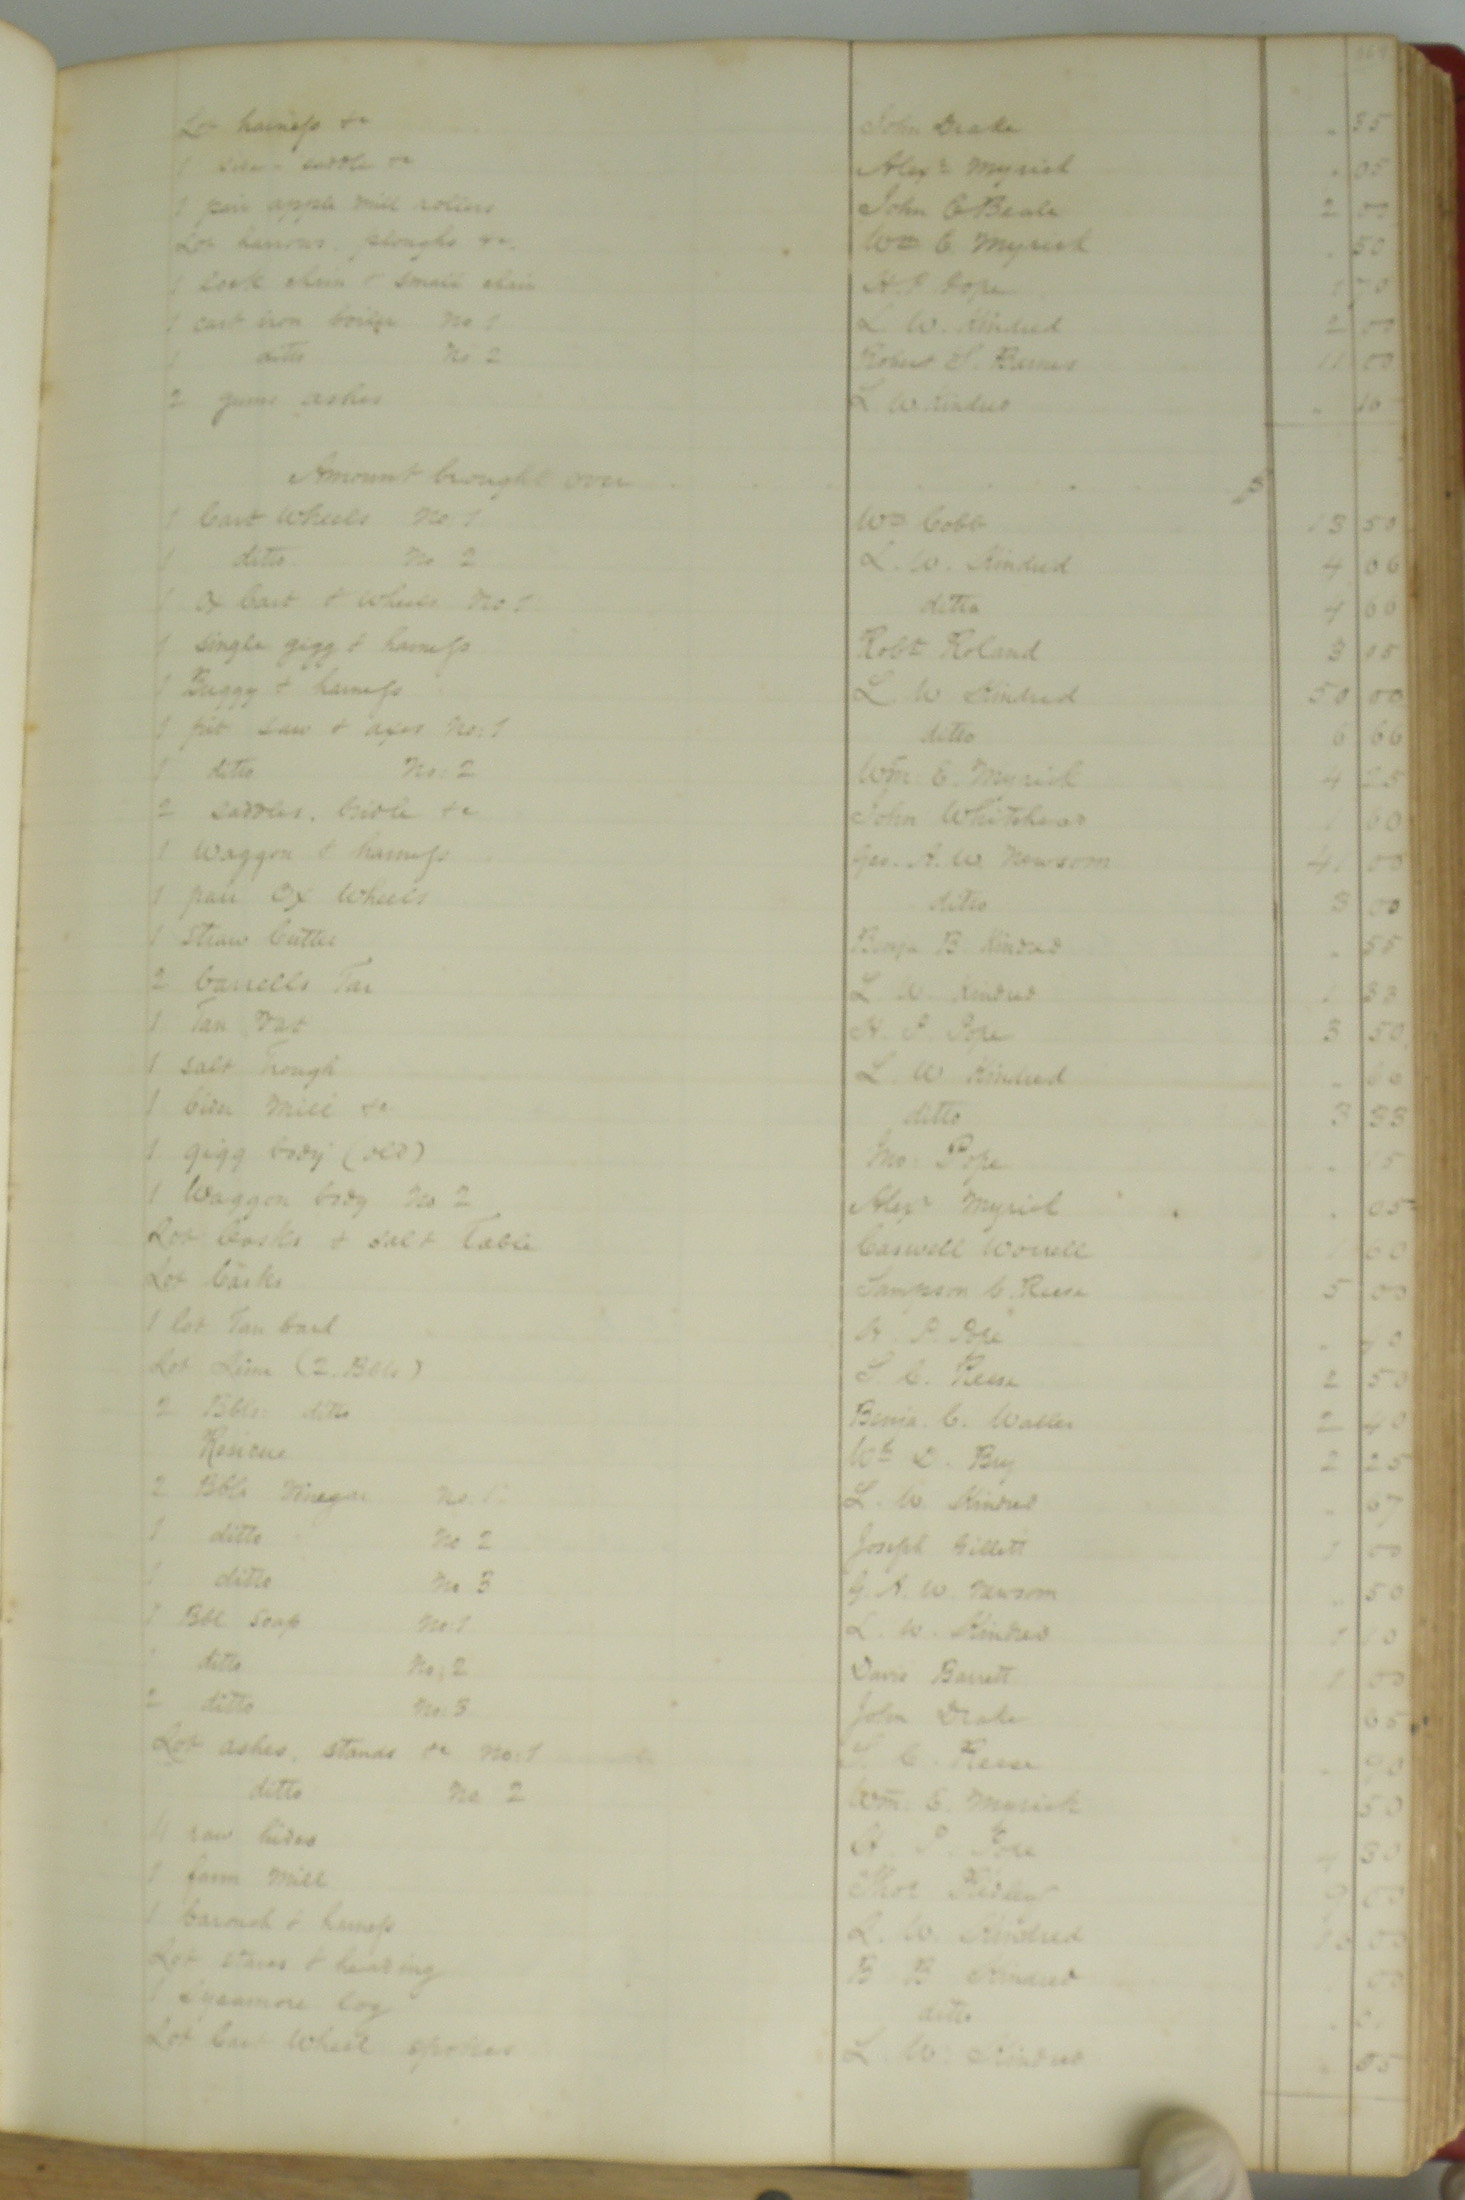 Lot harness &c John Drake " 35
1 saddle &c Alexr Myrick " 05
1 pair apple mill rollers John C Beale 2 00
Lot harrows, ploughs &c. Wm E. Myrick " 50
1 lock chain & small chain H. P. Pope 1 70
1 cast iron boiler No 1 L. W. Kindred 2 00
1 ditto No 2 Robert S. Barnes 11 00
2 gums ashes L W Kindred " 10
Amount brought over $
1 Cart Wheels No: 1 Wm Cobb 13 50
1 ditto No 2 L. W. Kindred 4 66
1 Ox Cart & Wheels No: 1 ditto 4 66
1 single gigg & harness Robt Roland 3 05
1 Buggy & harness L W Kindred 50 00
1 pit saw & axes No: 1 ditto 6 66
1 ditto No: 2 Wm: E. Myrick 4 25
2 saddles, bridle &c John Whitehead 1 60
1 Waggon & harness Geo. A. W. Newsom 41 00
1 pair Ox Wheels ditto 3 00
1 straw Cutter Benja B Kindred " 55
2 barrells Tar L. W. Kindred 1 33
1 Tan Vat H. P. Pope 3 50
1 salt Trough L. W Kindred " 66
1 Cider Mill &c ditto 3 33
1 gigg body (old) Pope " 15
1 Waggon body No 2 Alexr Myrick " 05
Lot Casks & salt Table Caswell Worrell 1 60
Lot Casks Sampson C. Reese 5 00
1 lot Tan bark H. P. Pope "
Lot Lime (2. Bbls) S. C. Reese 2 50
2 Bbls: ditto Benja. C. Waller 2 40
Residue Wm D. Bry 2 25
2 Bbls Vinegar No: 1: L. W. Kindred " 67
1 ditto No 2 Joseph Gillett 1 00
1 ditto No 3 G. A. W. Newsom " 50
1 Bbl soap No: 1 L. W. Kindred 1 10
1 ditto No; 2 Davis Barrett 1 00
2 ditto No: 3 John Drake 65
Lot ashes, stands &c No: 1 S. C. Reese " 90
ditto No 2 Wm: E. Myrick 50
raw hides H. P. Pope 4 30
1 farm Mill Thos Ridley 9 00
1 Carouch & harness L. W. Kindred 10 00
Lot staves & heading B B Kindred
1 Sycamore log ditto
Lot Cart Wheel spokes L. W: Kindred " 05